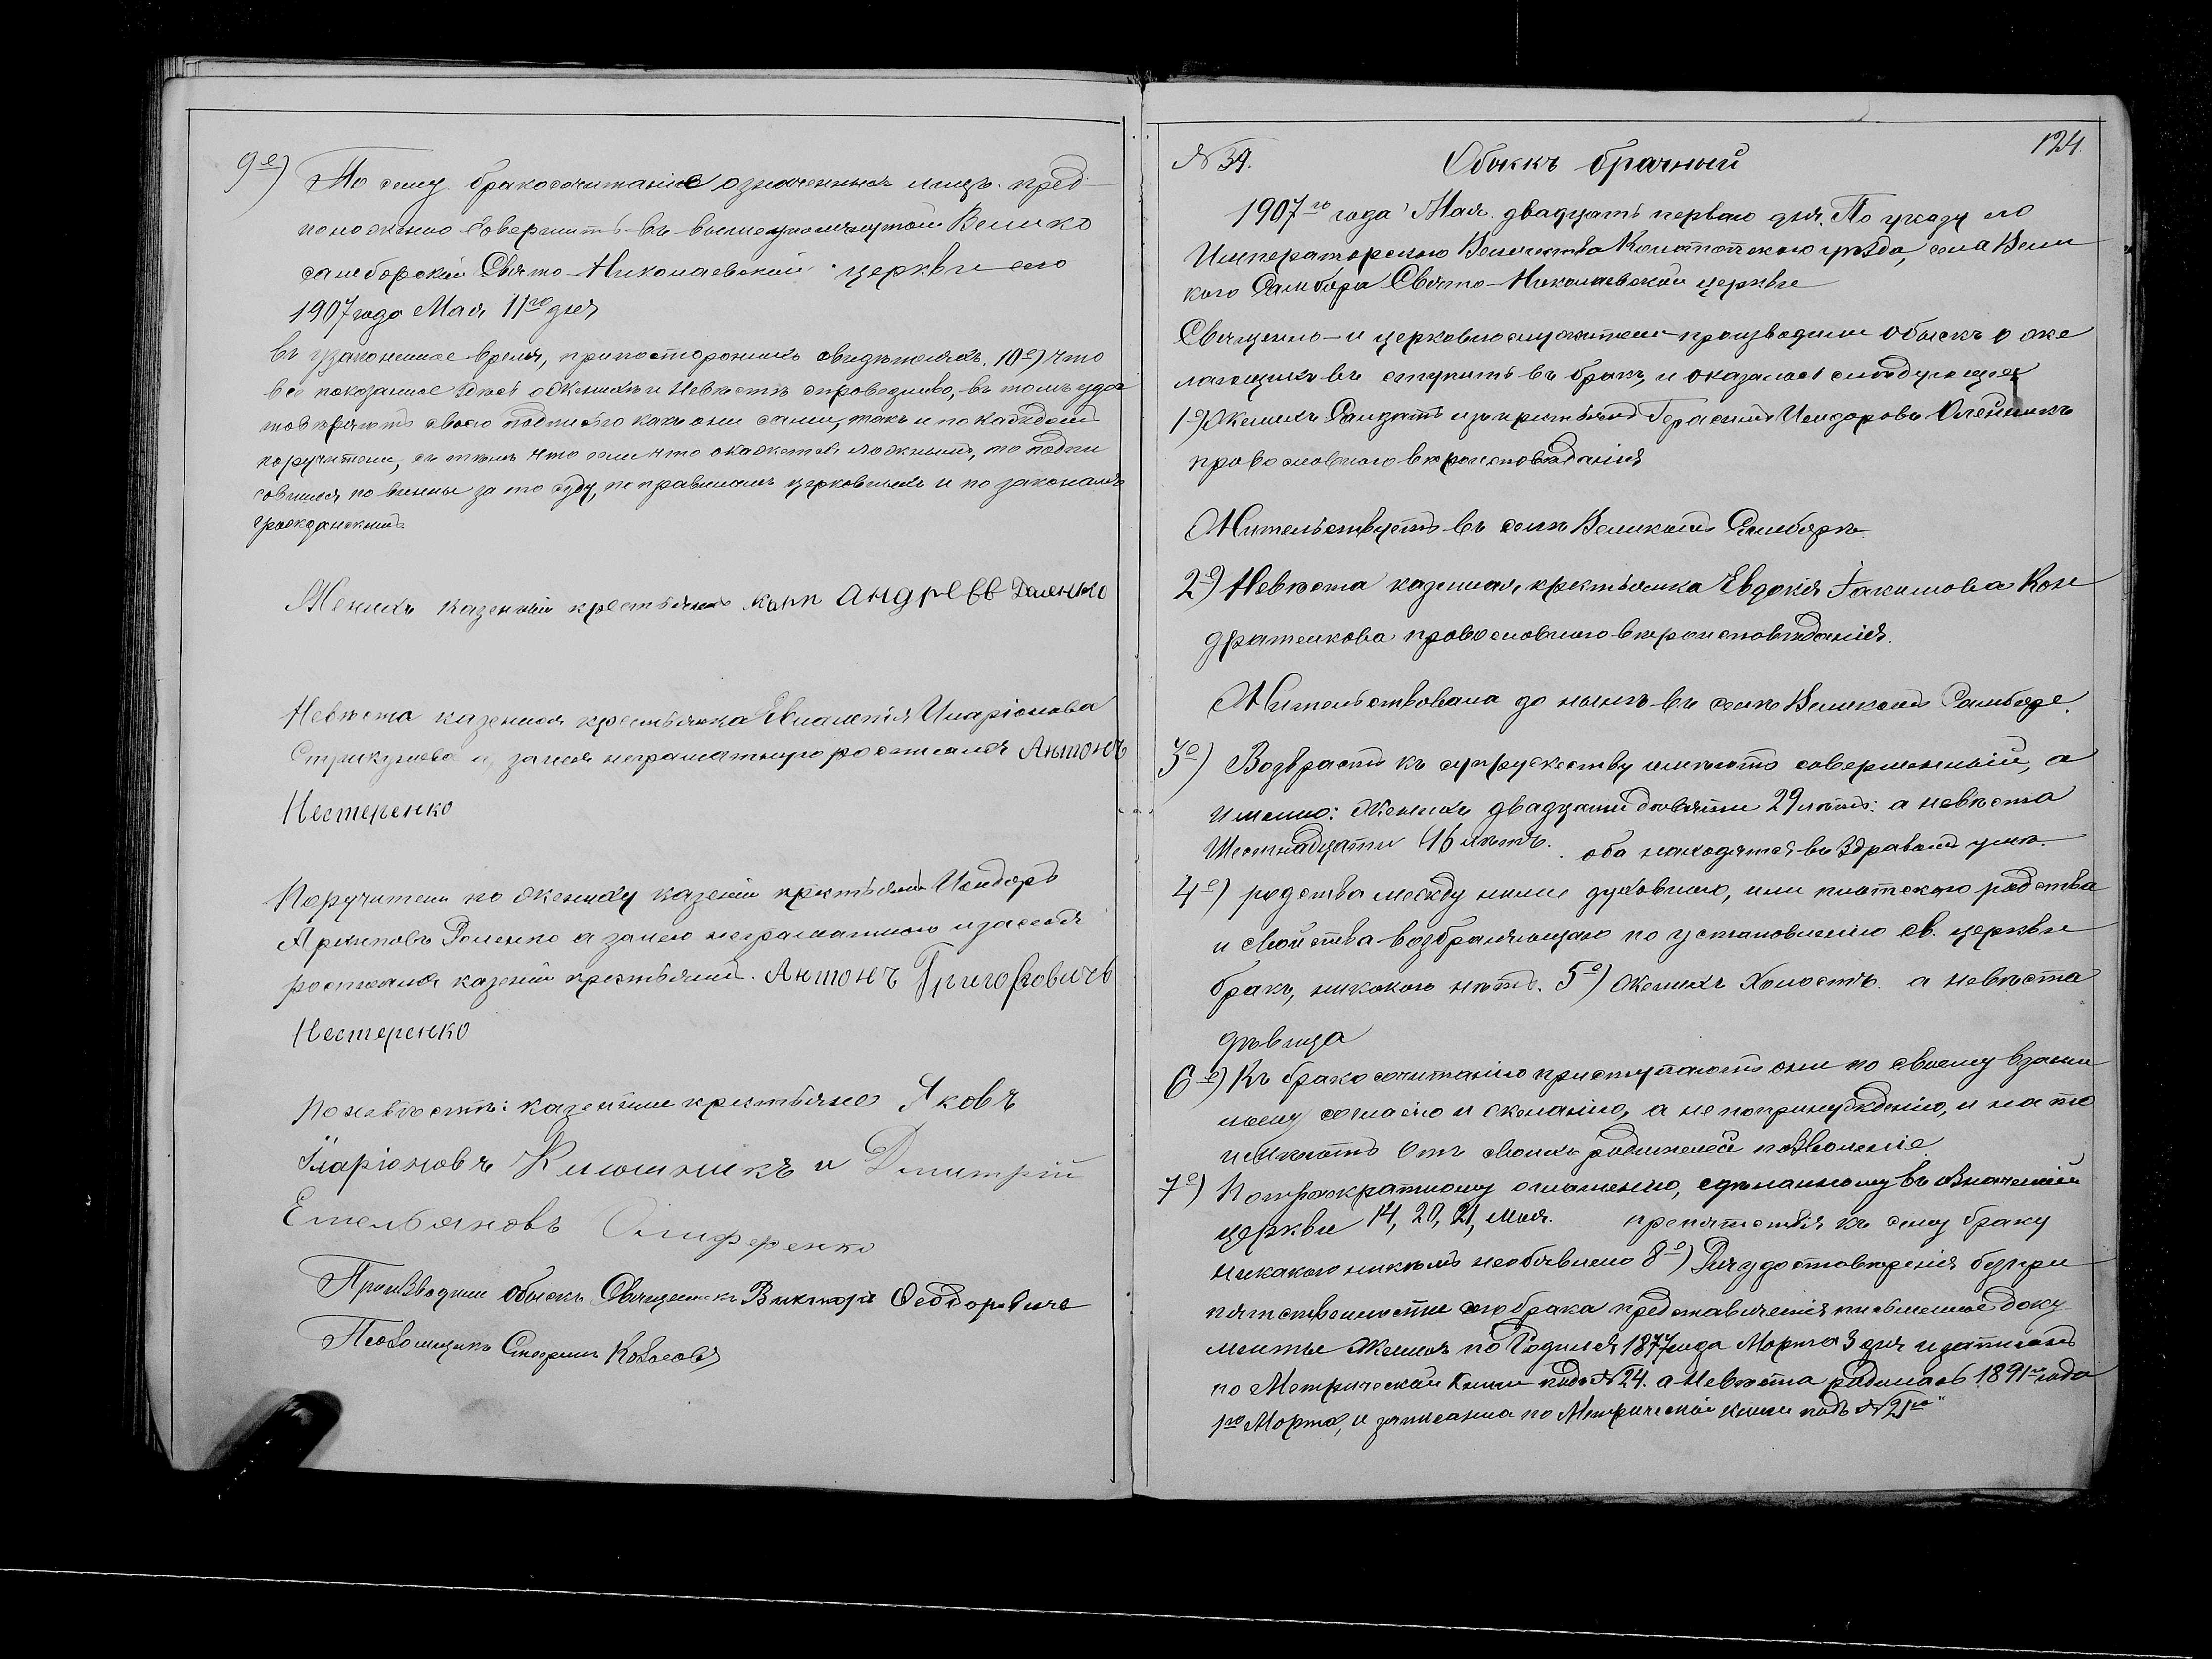 9е) По сему бракосочитаніе означенныхъ лицъ пред-
положено Совершить въ вышеупомянутой Велико
самборской Свято-Николаевской церкви сего
1907 года Мая 11го дня
въ узаконенное время, припостороннихъ свидѣтеляхъ. 10е) Что
все показанное здѣсь о Женихѣ и Невѣстѣ справедливо, въ томъ удос
товѣряютъ своею подписью какъ они сами, такъ и по каждомъ
поручители, съ тѣмъ что если что окажется ложнымъ, то подпи
совшіеся повинны за то суду, по правиламъ церковнымъ и по законамъ
гражданскимъ
Женихъ казенный крестьянинъ Андреевъ
Невѣста казенная крестьянка Иларіонова
а за нея неграматную росписался Антонъ
Нестеренко
Поручители по Жениху казенный крестьянинъ Исидоръ
а за него неграматного и засебя
росписался казеный крестьянинъ Антонъ Григоровичъ
Нестеренко
По невѣстѣ: казенные крестьяне Яковъ
Іларіоновъ и Дмитрій
Емельяновъ Олиференко
Производили обыскъ Священникъ Викторъ Ѳеодоровичъ
Псаломщикъ
№ 34. Обыкъ брачный 124
1907го года Мая двадцать перваго дня. По указу его
Императорскаго Величества Конотопского уѣзда, села Вели
кого Самбора Свято-Николаевской церкви
Священно- и церковнослужители производили обыскъ о же
лающихъ въ ступить въ бракъ, и оказалось слѣдующее
1е) Женихъ изъ крестьянъ Герасимъ Исидоровъ Олейникъ
провославного вѣроисповѣданія
Жительствуетъ въ селѣ Великомъ Самборѣ
2е) Невѣста казенная крестьянка Евдокія Іакимова Кон
дратенкова провославного вѣроисповѣданія.
Жительствовала до нынѣ въ селѣ Великомъ Самборе.
3е) Возврастъ къ супружеству имѣютъ совершенный, а
именно: Женихъ двадцати девяти 29 лѣтъ: а невѣста
Шестнадцати 16 лѣтъ. оба находятся въ здравомъ умѣ.
4е) родства между ними духовного, или плотского родства
и свойства возбраняющаго по установленію св. церкви
бракъ, никокого нѣтъ. 5е) Женихъ Холостъ. а невѣста
дѣвица
6е) Къ бракосочитанію приступаютъ они по своему взаим
ному согласію и желанію, а не попринужденію, и на то
имѣютъ отъ своихъ родителей позволеніе
7е) По троекратному оглашенію, сдѣланному въ означеной
церкви 14, 20, 21, Мая. препятствія къ сему браку
никакого никѣмъ необъявлено 8е) Для удостовѣренія безпри
пятственности сего брака представленія письменные доку
менты Женихъ Родился 1877 года Марта 3 дня и записанъ
по Метрической Книги подъ №24. а Невѣста родилась 1891го года
1го Марта, и записанна по Метрической книги подъ №21го